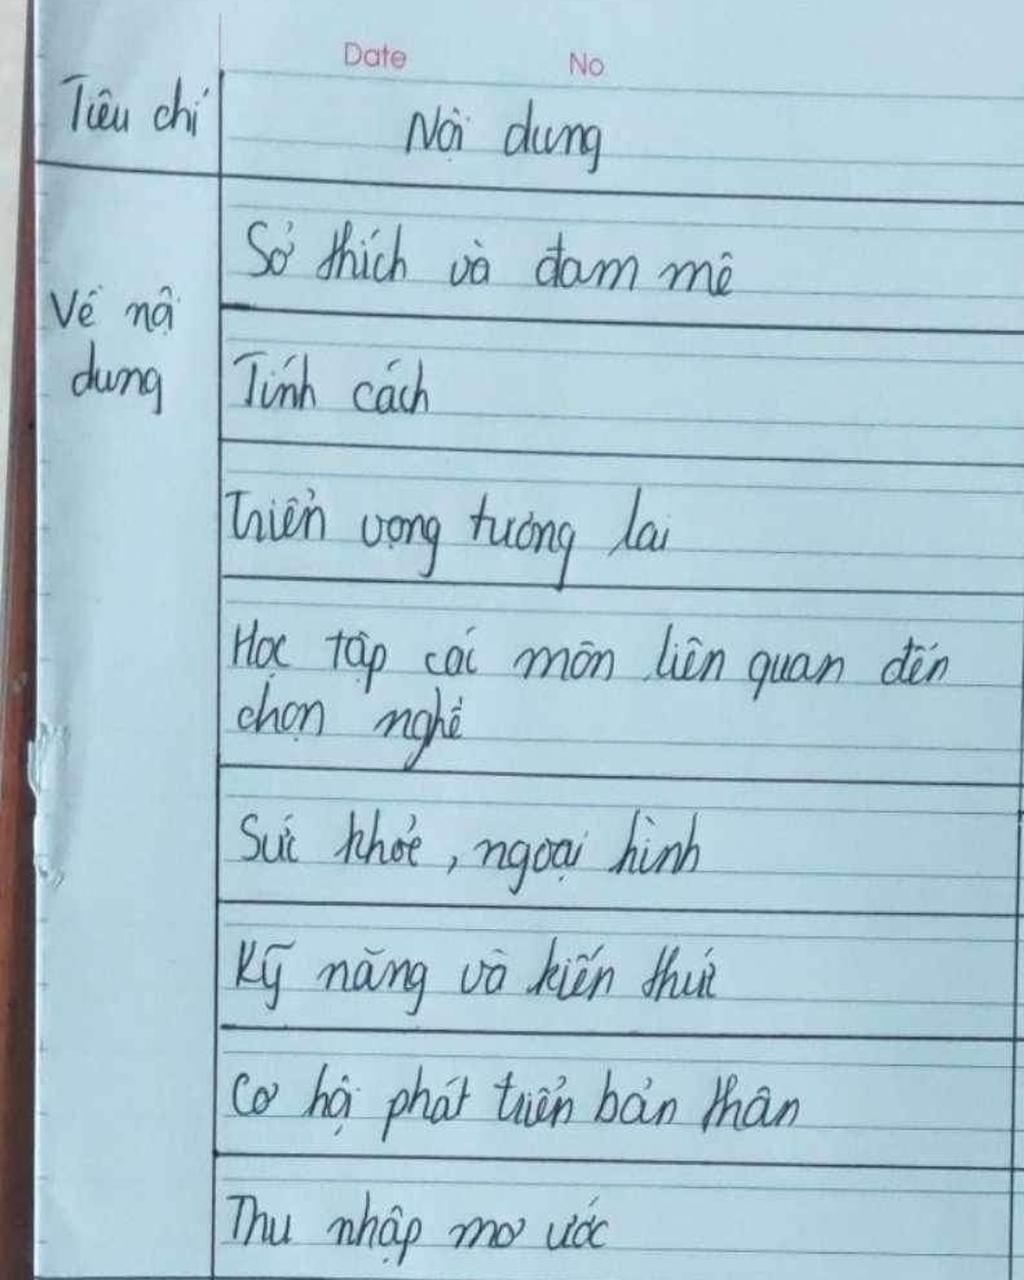 Date No
Tiêu chí Nội dung
Sở thích và đam mê
Về nội
dung
Tính cách
Triển vọng tương lai
Học tập các môn liên quan đến
chọn nghề
Sức khỏe, ngoại hình
Kỹ năng và kiến thức
Cơ hội phát triển bản thân
Thu nhập mơ ước